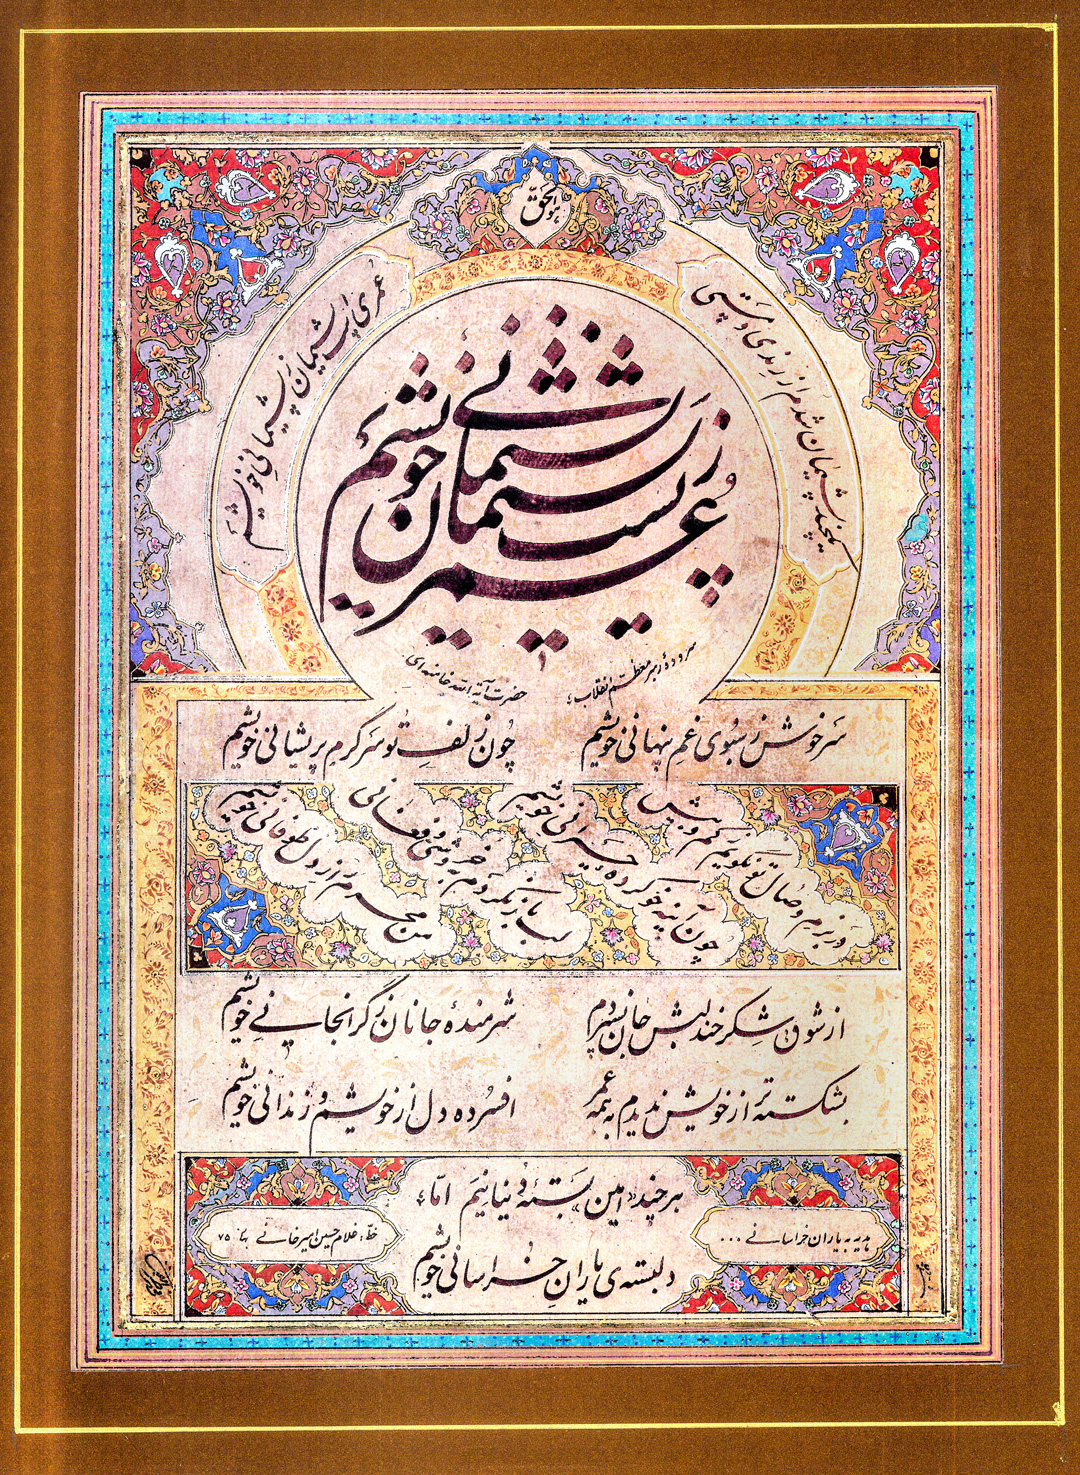 هوالحق
یکچند پشیمان شدم از رندی و مستی
عمری است پشیمان ز پشیمانی خویشم
عمریست پشیمان ز پشیمانی خویشم
سروده رهبر معظم انقلاب؛
حضرت آیة الله خامنه‌ای
سرخوش ز سبوی غم پنهانی خویشم
چون زلف تو سرگرم پریشانی خویشم
در بزم وصال تو نگویم ز کم و بیش
چون آینه خو کرده به حیرانی خویشم
لب باز نکردم به خروشی و فغانی
من محرم راز دل طوفانی خویشم
از شوق شکرخند لبش جان نسپردم
شرمندهٔ جانان ز گرانجانی خویشم
بشکسته‌تر از خویش ندیدم به همه عمر
افسرده دل از خویشم و زندانی خویشم
هر چند «امین» بستهٔ دنیا نیم امّا،
دلبسته‌ی یاران خراسانی خویشم
هدیه به یاران خراسانی ...
خطّ: غلامحسین امیرخانی ۷۵